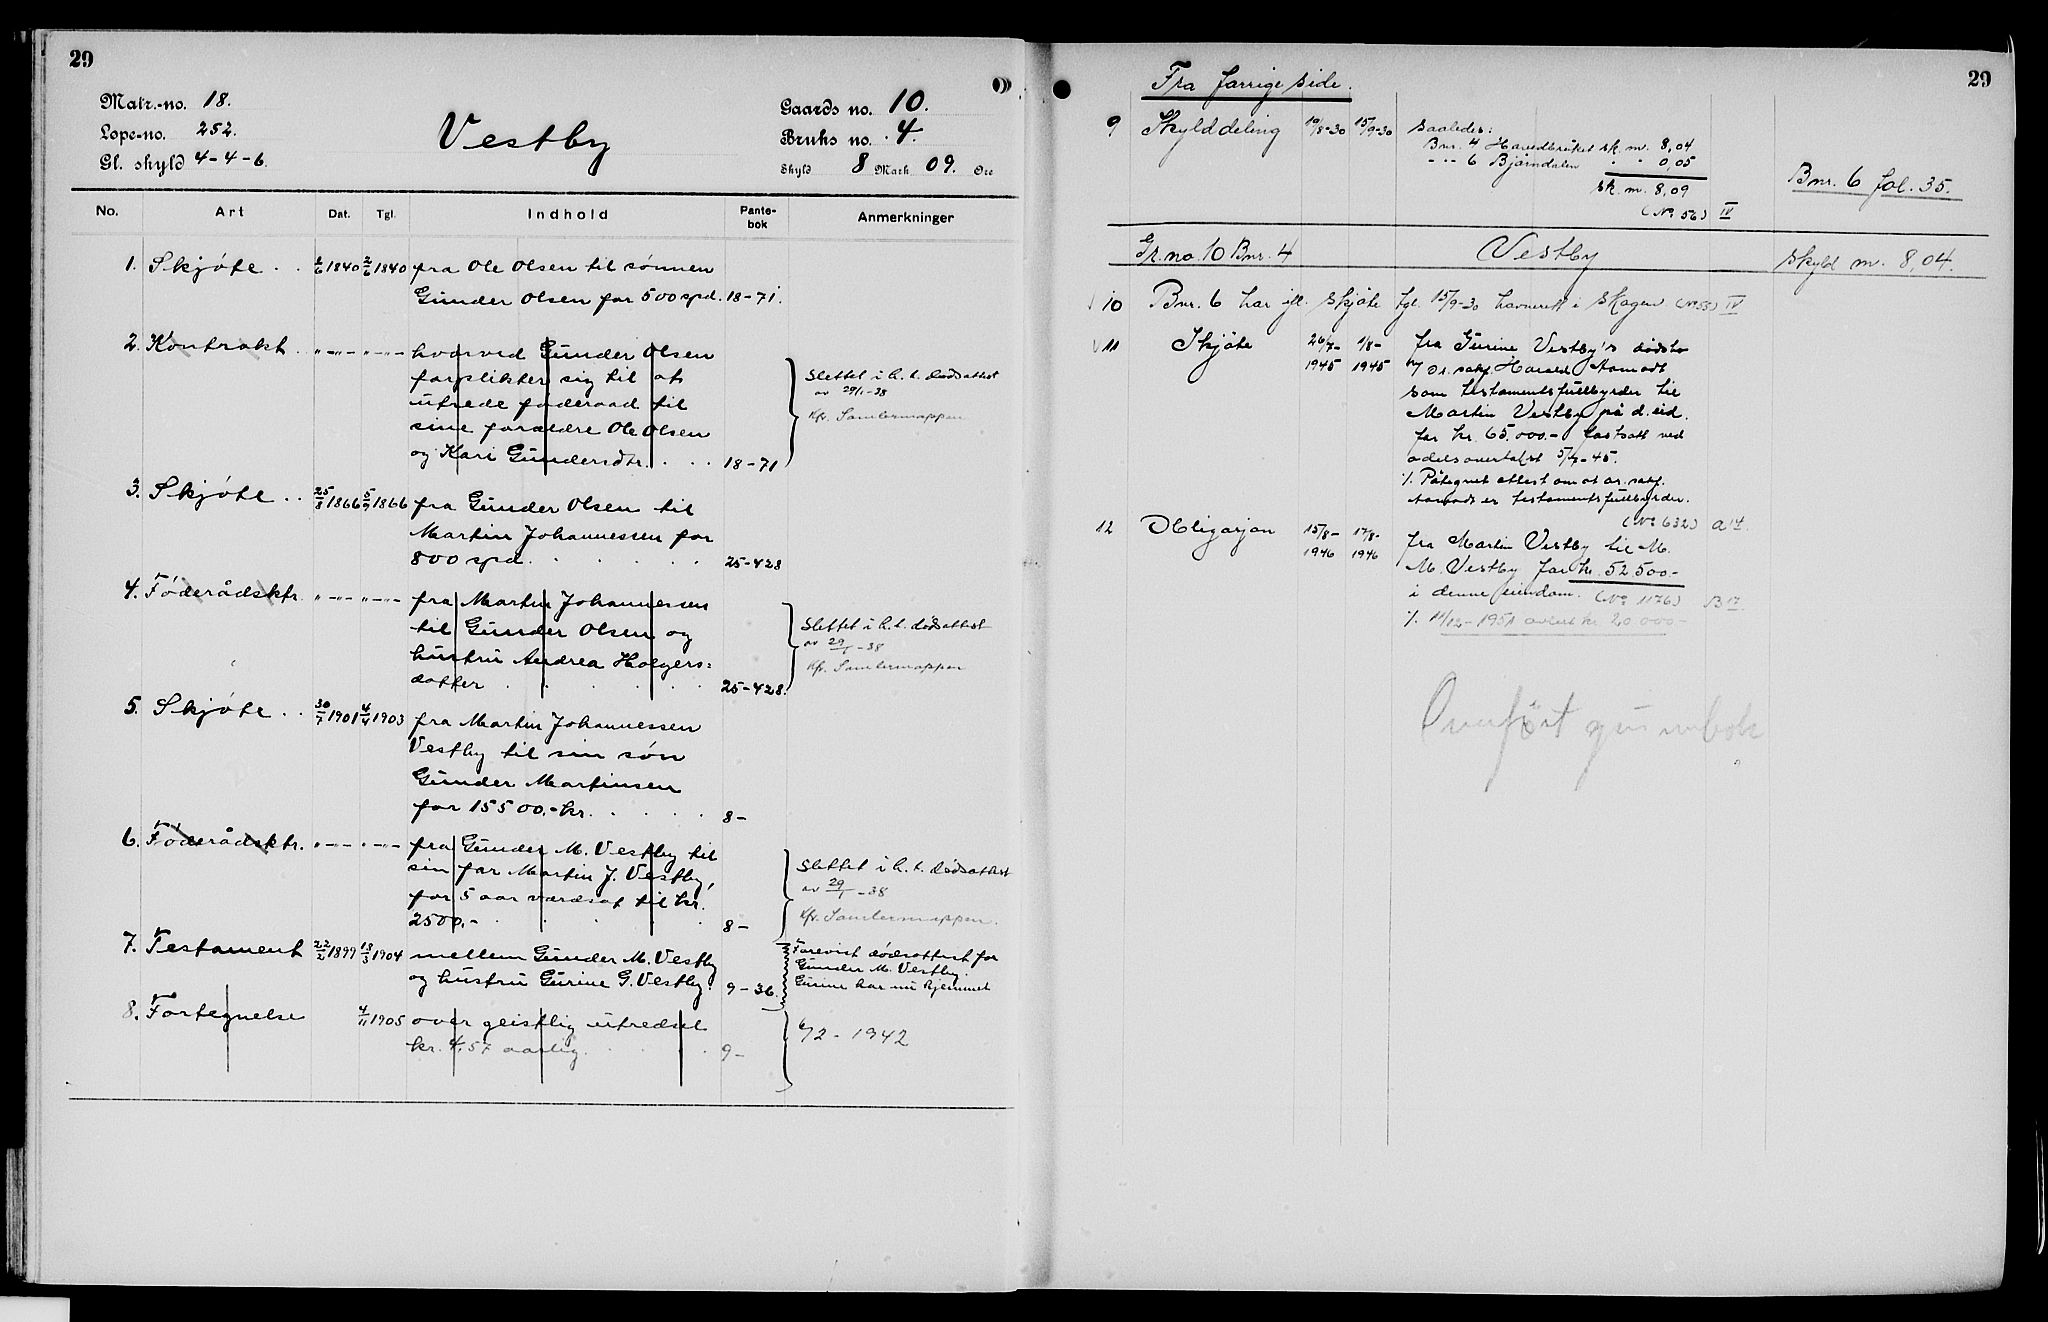 29
Matr.-no. 18.
Løpe-no. 252.
Gl. skyld 4-4-6.
Vestby
Gaards no. 10.
Bruks no. 4.
Skyld 8 Mark 09. Øre
No. Art Dat. Tgl. Indhold Pante-bok Anmerkninger
1. Skjøte . . 2/6 1840 2/6 1840 fra Ole Olsen til sønnen
Gunder Olsen for 500 spd. 18-71.
2. Kontrakt . " -"- " -"- hvorved Gunder Olsen
forplikter sig til at
utrede føderaad til
sine forældre Ole Olsen
og Kari Gundersdtr. . . . 18-71
Slettet i h. t. dødsattest
av 29/1-38
Kfr. Samlermappen
3. Skjøte . . 25/8 1866 5/9 1866 fra Gunder Olsen til
Martin Johannessen for
800 spd. . . . . 25-428
4. Føderådsktr. " -"- " -"- fra Martin Johannessen
til Gunder Olsen og
hustru Andrea Holgers=
datter . . . . . 25-428.
Slettet i h. t. dødsattest
av 29/1-38
Kfr. Samlermappen
5. Skjøte . . 30/7 1901 4/4 1903 fra Martin Johannessen
Vestby til sin søn
Gunder Martinsen
for 15500,- kr. . . . . 8-
6. Føderådsktr. " -"- " -"- fra Gunder M. Vestby til
sin far Martin J. Vestby,
for 5 aar værdsat til kr.
2500,- . . . . . 8-
Slettet i h. t. dødsattest
av 29/1-38
Kfr. Samlermappen.
7. Testament 22/2 1899 18/3 1904 mellem Gunder M. Vestby
og hustru Gurine G. Vestby. 9-36.
Forevist dødsattest for
Gunder M. Vestby.
Gurine har nu hjemmel
8. Fortegnelse 4/11 1905 over geistlig utredsel
kr. 4,57 aarlig. . . . . 9-
6/2 - 1942
29
Fra forrige side.
9 Skylddeling 19/8-30 15/9-30 saaledes:
Bnr. 4 Hovedbruket sk. m. 8,04
- "- 6 Bjørndalen " " 0,05
sk. m. 8,09
(No 56) IV
Bnr. 6 fol. 35.
Gr. no. 10 Bnr. 4 Vestby skyld m. 8,04.
10 Bnr. 6 har ifl. skjøte tgl. 15/9-30 havnerett i skogen (No 55) IV
11 Skjøte 26/7- 1945 1/8- 1945 fra Gurine Vestby's dødsbo
v/ Or. sakf. Harald Aamodt
som testamentsfullbyrder til
Martin Vestby på d. eid.
for kr. 65.000.- fastsatt ved
odelsovertakst 5/7-45.
%. Påtegnet attest om at or. sakf.
Aamodt er testamentsfullbyrder.
(No 632) a 14.
12 Obligasjon 15/8- 1946 17/8- 1946 fra Martin Vestby til M.
M. Vestby for kr. 52500.-
i denne eiendom. (No 1176) B 17.
%. 11/12-1951 avlest kr. 20 000-
Overført grunnbok